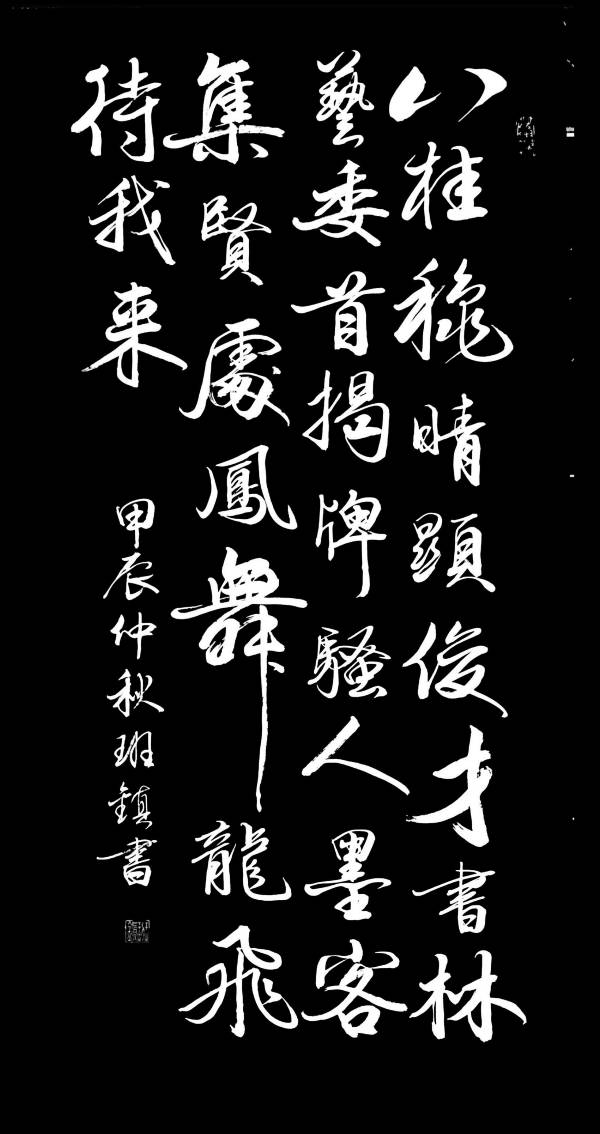 八桂穐晴顯俊才書林
藝委首揭牌騷人墨客
集賢處鳳舞龍飛
待我来
甲辰仲秋班鎮書